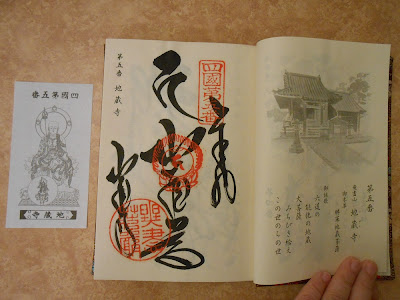 四國第五番
地蔵寺
第五番 地蔵寺
四國第五番
第五番
無尽山 地蔵寺
御本尊 勝軍地蔵菩薩
御詠歌
六道の
能化の地蔵
大菩薩
みちびき給え
この世のちの世